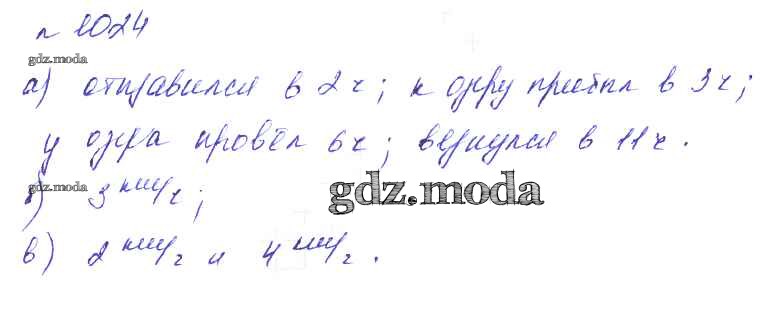 № 1024
gdz.moda
а) отправился в 2 ч; к озеру прибыл в 3 ч;
у озера провёл 6 ч; вернулся в 11 ч.
gdz.moda
б) 3 км/ч;
gdz.moda
в) 2 км/ч и 4 км/ч.